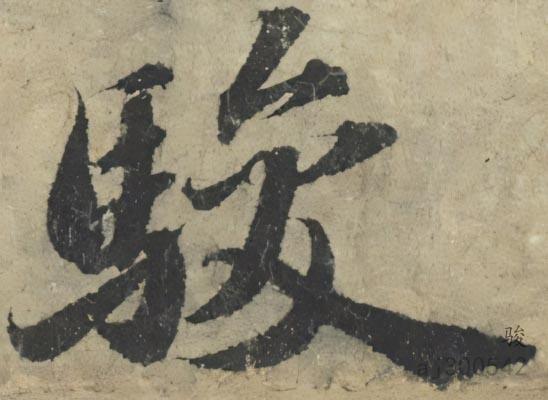 駿
骏
aj300542